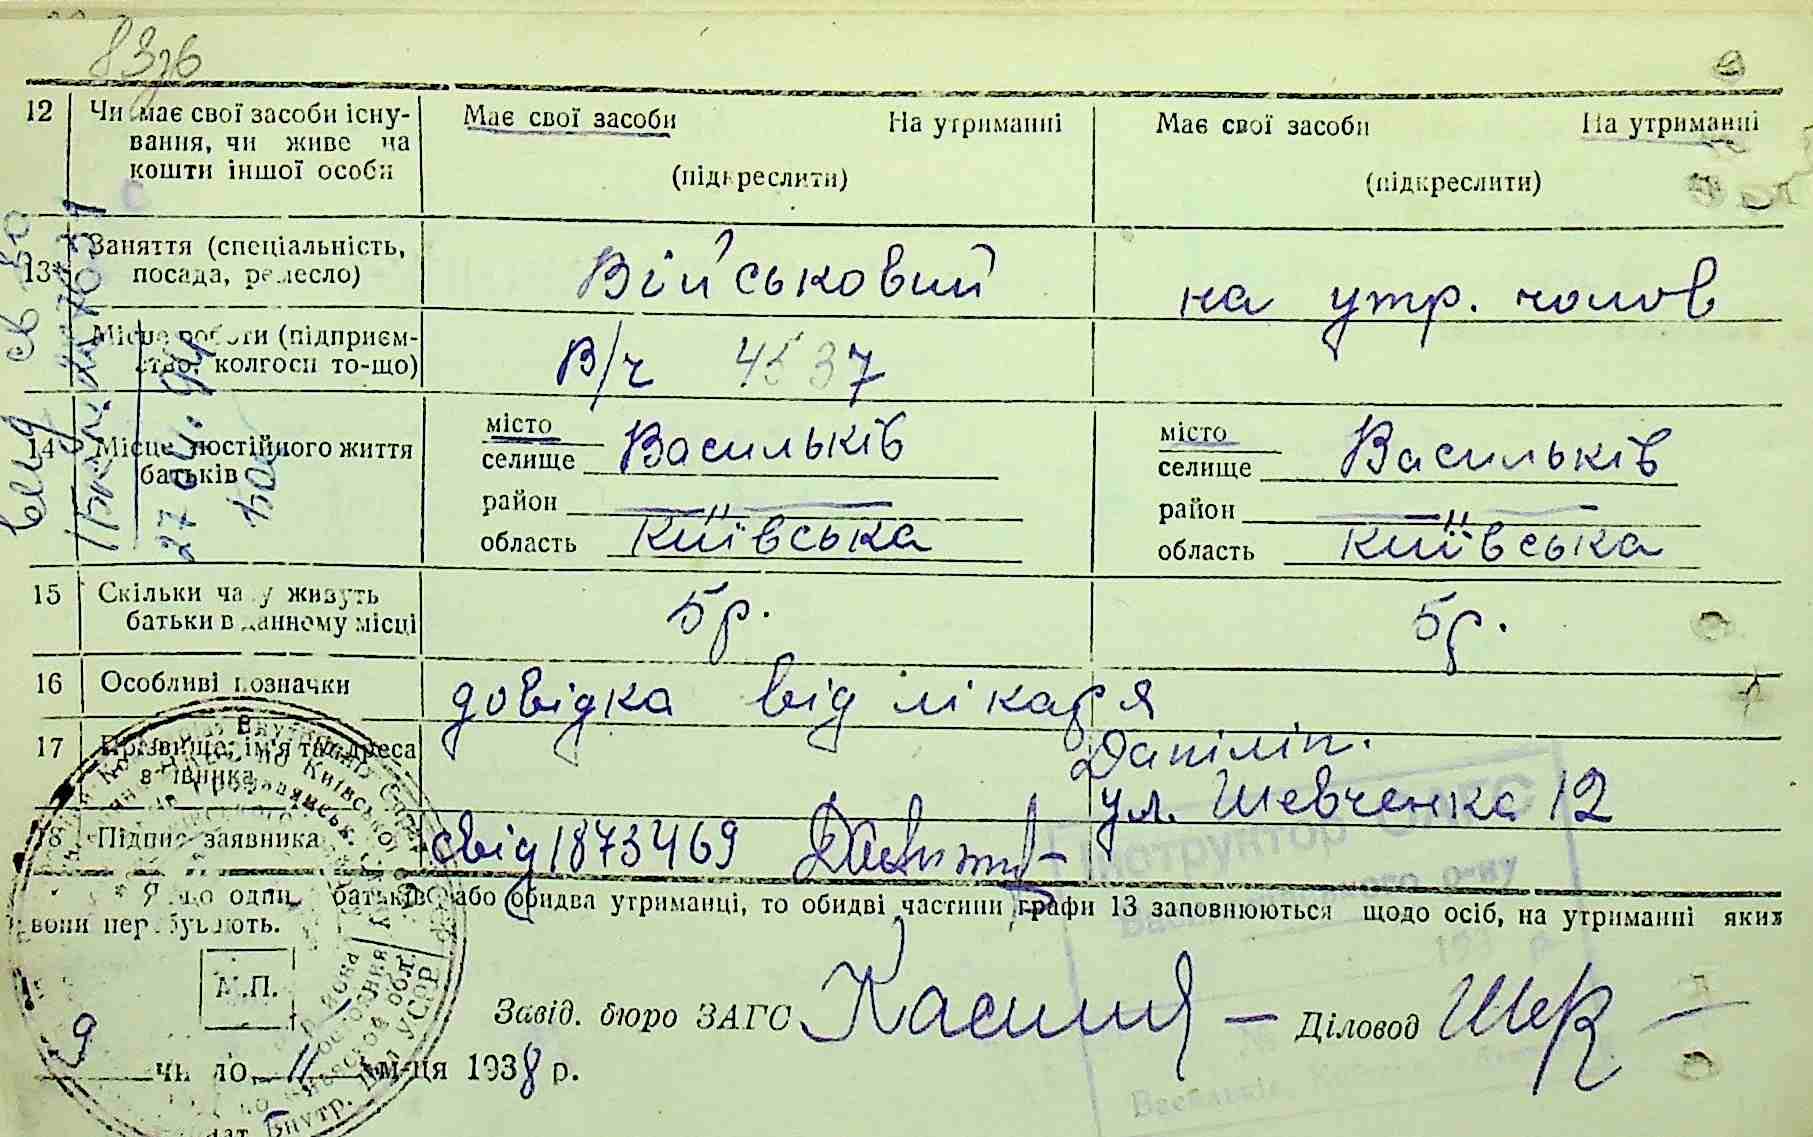 8376
12 Чи має свої засоби існу- Має свої засоби На утриманні Має свої засоби На утриманні
вання, чи живе на
кошти іншої особи (підкреслити) (підкреслити)
13 Заняття (спеціальність, Військовий на утр. чолов
посада, ремесло)
Місце роботи (підприєм- В/ч 4537
ство, колгосп то-що)
14 Місце постійного життя місто Васильків місто Васильків
батьків селище селище
район район
область Київська область Київська
15 Скільки часу живуть 5р. 5р.
батьки в данному місці
16 Особливі позначки довідка від лікаря
17 Прізвище, ім'я та адреса
заявника ул. Шевченка 12
18 Підпис заявника свід 1873469
Якщо один з батьків або обидва утриманці, то обидві частини графи 13 заповнюються щодо осіб, на утриманні яких
вони перебувають.
М.П.
Завід. бюро ЗАГС Діловод
9 число 11 м-ця 1938 р.
Інструктор